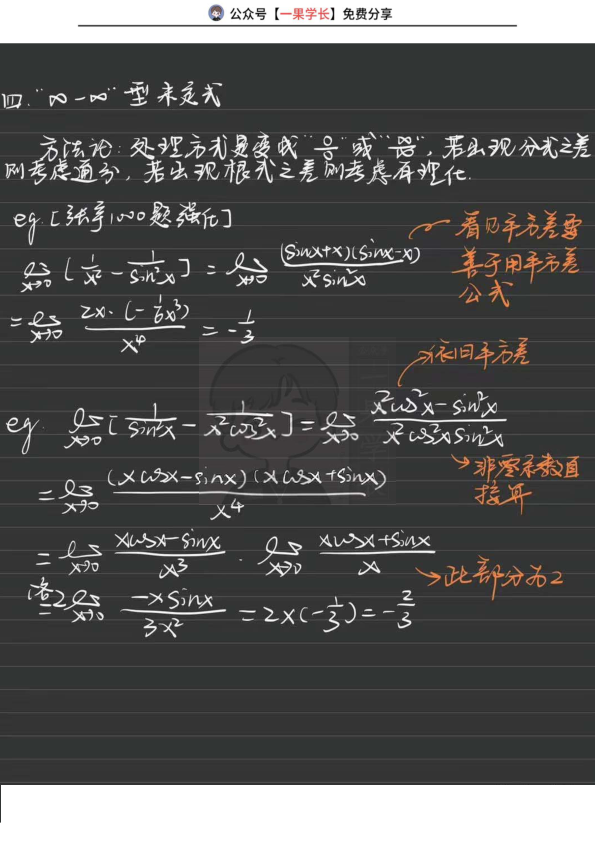 公众号【一果学长】免费分享
四. "∞-∞" 型未定式
方法论: 处理方式是变成 "0/0" 或 "∞/∞", 若出现分式之差
则考虑通分, 若出现根式之差则考虑有理化.
eg. [张宇1000题强化]
看见平方差要
善于用平方差
公式
lim x→0 [1/x² - 1/sin²x] = lim x→0 (sinx+x)(sinx-x) / x²sin²x
= lim x→0 2x·(-1/6x³) / x⁴ = -1/3
依旧平方差
eg. lim x→0 [1/sin²x - 1/x²cos²x] = lim x→0 x²cos²x-sin²x / x²cos²xsin²x
非零系数直
接算
= lim x→0 (xcosx-sinx)(xcosx+sinx) / x⁴
= lim x→0 xcosx-sinx / x³ · lim x→0 xcosx+sinx / x
此部分为2
洛= 2 lim x→0 -xsinx / 3x² = 2×(-1/3) = -2/3